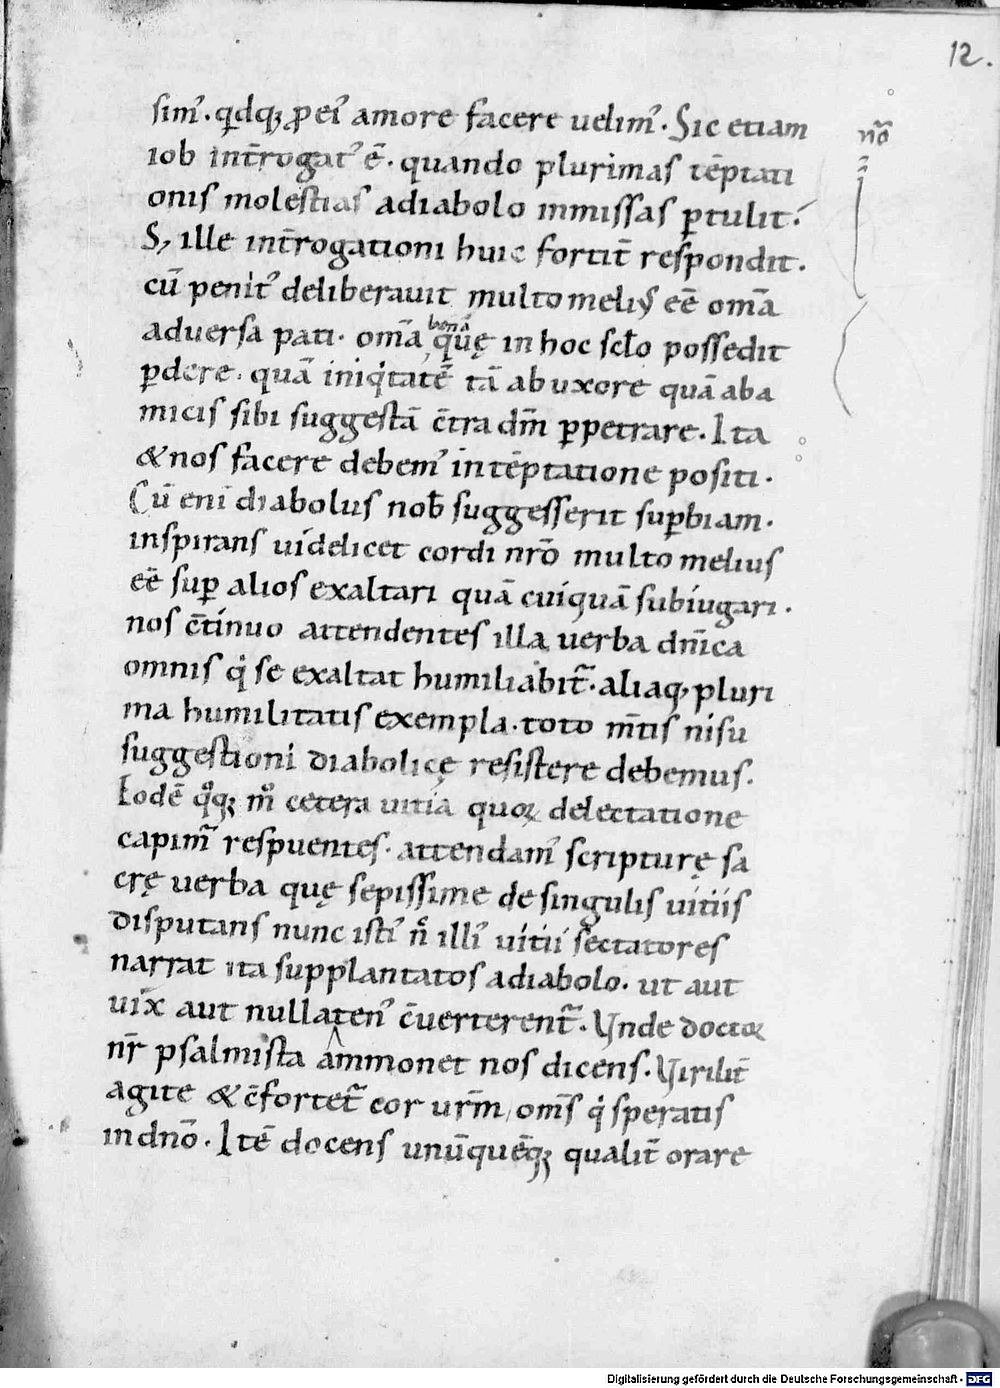 12.
simꝰ. qͥdq; ꝓ eiꝰ amore facere uelimꝰ. Sic etiam
nōᷓ
iob int̄rogatꝰ ē. quando plurimas tēptati
onis molestias adiabolo inmissas ꝑtulit.
S; ille int̄rogationi huic fortit̄ respondit.
cū penitꝰ deliberauit multo meliꝰ eē om̄a
aduersa pati. om̄a bona quę in hoc scło possedit
ꝑdere. quā iniqͥtatē tā ab uxore quā aba
micis sibi suggestā c̄tra dm̄ ꝑpetrare. Ita
& nos facere debemꝰ in tēptatione positi.
Cū eni diabolus nob̄ suggesserit suꝑbiam.
inspirans uidelicet cordi nr̄o multo melius
eē suꝑ alios exaltari quā cuiquā subiugari.
nos c̄tinuo attendentes illa uerba dn̄ica
omnis qͥ se exaltat humiliabit᷑. aliaq; pluri
ma humilitatis exempla. toto m̄tis nisu
suggestioni diabolicę resistere debemus.
Eodē qͦq; mͦ cetera uitia quoꝝ delectatione
capim᷑ respuentes. attendamꝰ scripturę sa
crę uerba quę sepissime de singulis uitiis
disputans nunc istiꝰ nͨ illiꝰ uitii sectatores
narrat ita supplantatos adiabolo. ut aut
uix aut nullatenꝰ c̄uerterent᷑. Vnde doctoꝝ
nr̄ psalmista ammonet nos dicens. Virilit̄
agite & c̄fortet᷑ cor ur̄m, om̄s qͥ speratis
in dn̄o. Itē docens unūquēq; qualit̄ orare
Digitalisierung gefördert durch die Deutsche Forschungsgemeinschaft - DFG